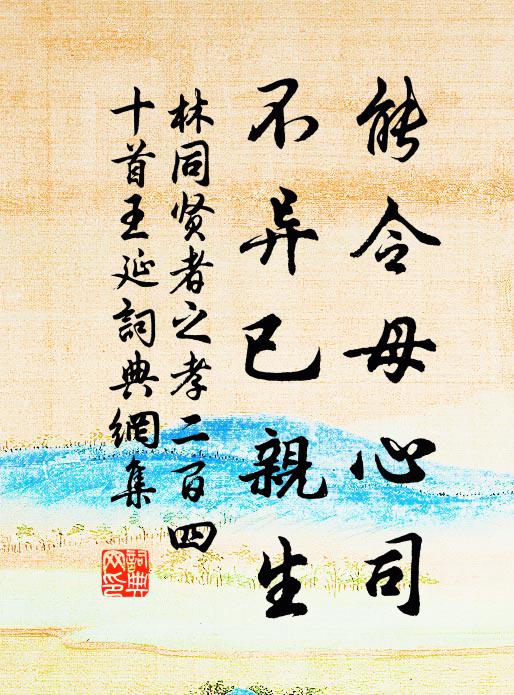 能令母心司
不异已親生
林同贤者之孝二百四
十首王延詞典網集
詞典
网印